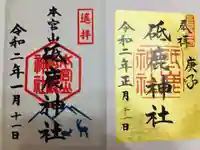 遥拝
本宮山
砥鹿神社
令和二年一月十一日
奉拝
庚子
砥鹿神社
令和二年正月十一日